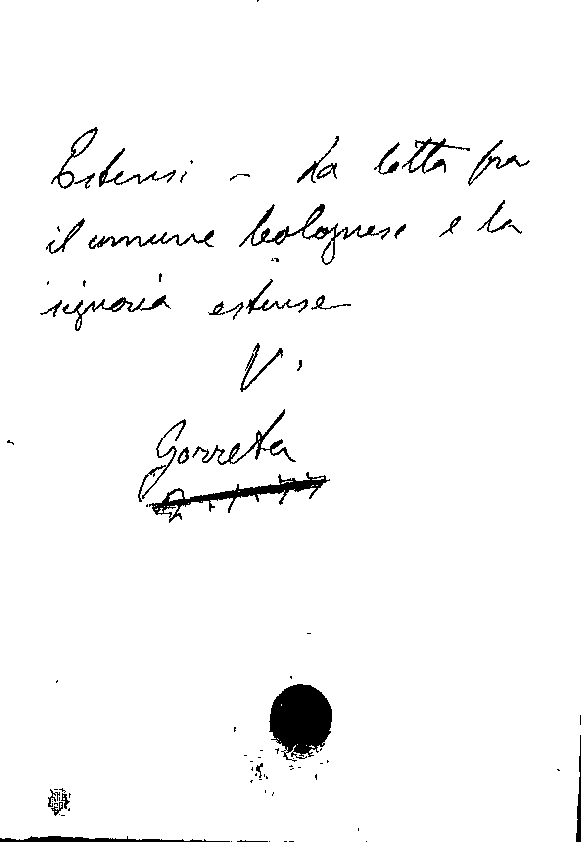 Estensi - La lotta fra
il comune bolognese e la
signoria estense
V.
Gorreta